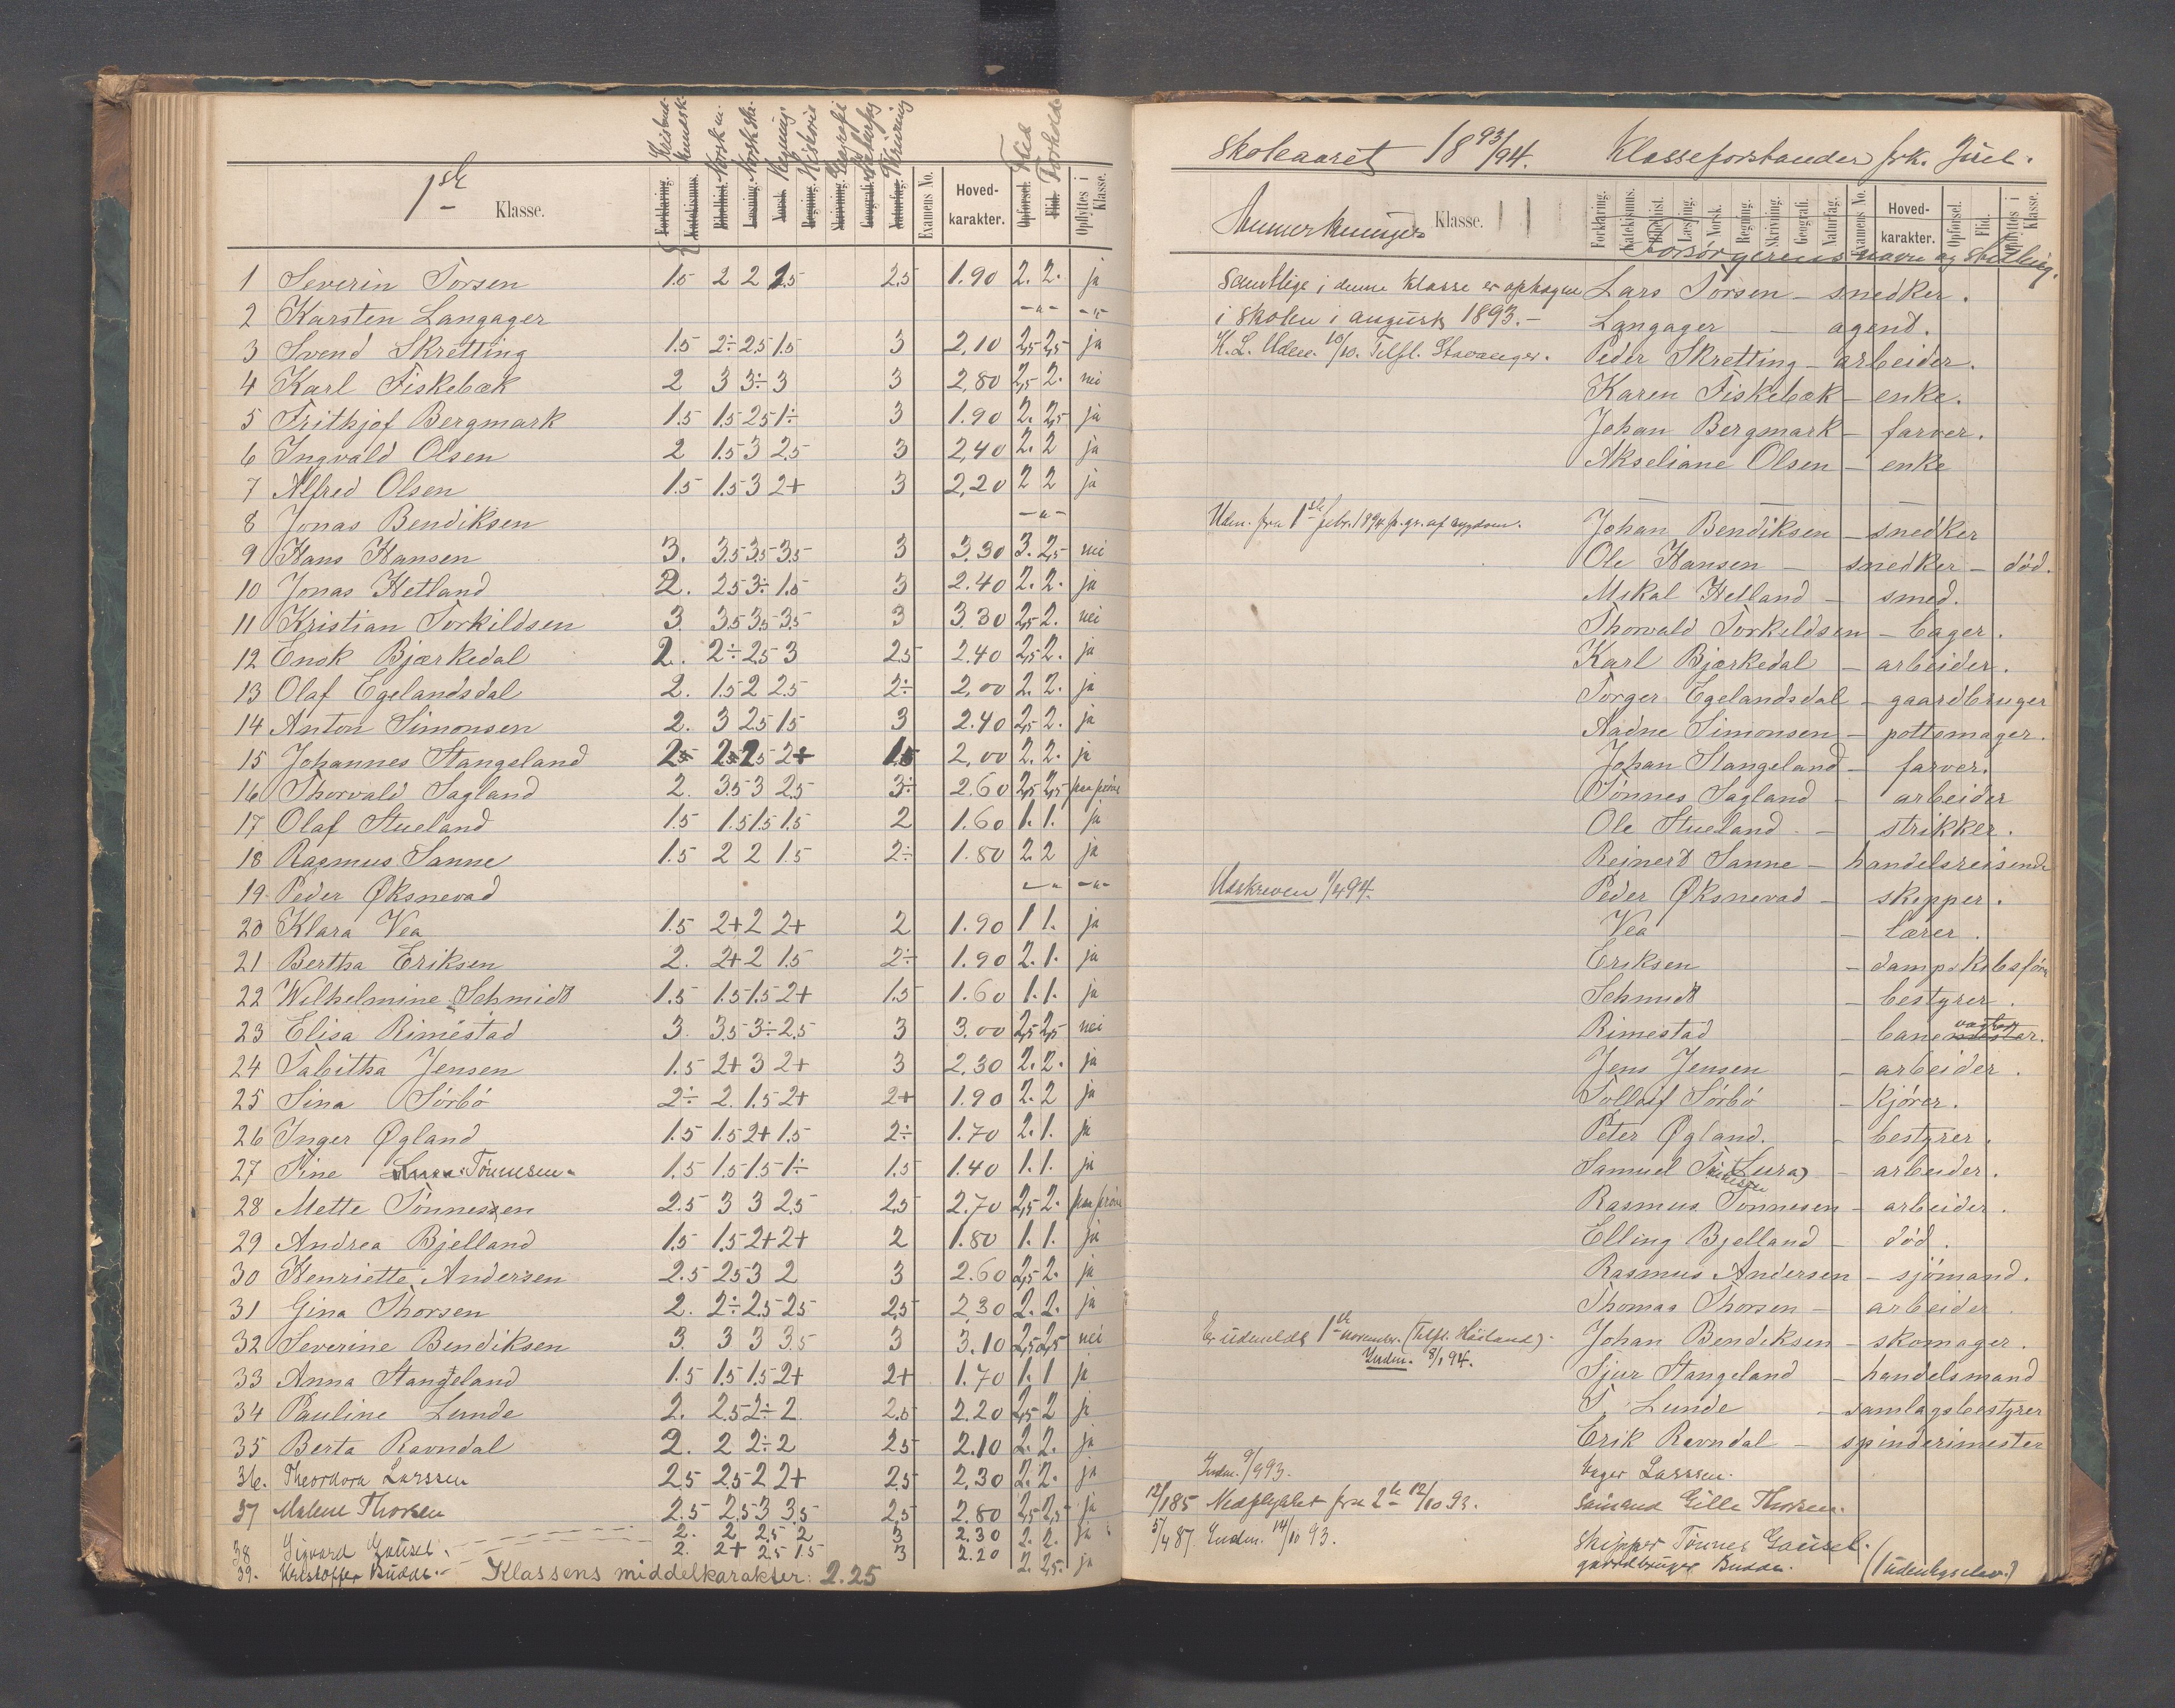 1ste Klasse.
Forklaring. Katekismus. Bibelhist. Læsning. Norsk. Regning. Skrivning. Geografi. Naturfag. Examens No. Hoved-karakter. Opførsel. Flid. Opflyttes i Klasse.
Norsk m. Norsk skr. Regning Historie Geografi Skrivning Flid Forhold
1 Severin Torsen 1.5 2 2 2.5 2.5 1.90 2. 2. ja
2 Karsten Langager -"- -"-
3 Svend Skretting 1.5 2÷ 2.5 1.5 3 2,10 2,5 2,5 ja
4 Karl Fiskebæk 2 3 3÷ 3 3 2,80 2,5 2. nei
5 Frithjof Bergmark 1.5 1.5 2.5 1÷ 3 1.90 2. 2,5 ja
6 Ingvald Olsen 2 1.5 3 2.5 3 2,40 2. 2 ja
7 Alfred Olsen 1.5 1.5 3 2+ 3 2,20 2 2 ja
8 Jonas Bendiksen -"-
9 Hans Hansen 3. 3.5 3.5 3.5 3 3,30 3. 2,5 nei
10 Jonas Hetland 2. 2.5 3÷ 1.5 3 2.40 2. 2. ja
11 Kristian Torkildsen 3. 3.5 3.5 3.5 3 3.30 2,5 2. nei
12 Enok Bjærkedal 2. 2÷ 2.5 3 2.5 2.40 2,5 2. ja
13 Olaf Egelandsdal 2. 1.5 2 2.5 2÷ 2,00 2. 2. ja
14 Anton Simonsen 2. 3 2.5 1.5 3 2.40 2,5 2. ja
15 Johannes Stangeland 2.5 2.5 2.5 2+ 1.5 2,00 2. 2. ja
16 Thorvald Sagland 2. 3.5 3 2.5 3÷ 2.60 2,5 2,5 paa prøve
17 Olaf Stueland 1.5 1.5 1.5 1.5 2 1.60 1. 1. ja
18 Rasmus Sanne 1.5 2 2 1.5 2÷ 1.80 2 2 ja
19 Peder Øksnevad -"- -"-
20 Klara Vea 1.5 2+ 2 2+ 2 1.90 1 1. ja
21 Bertha Eriksen 2. 2+ 2 1.5 2÷ 1.90 2. 1. ja
22 Wilhelmine Schmidt 1.5 1.5 1.5 2+ 1.5 1.60 1. 1. ja
23 Elisa Rimestad 3. 3.5 3÷ 2.5 3 3.00 2,5 2,5 nei
24 Tabitha Jensen 1.5 2+ 3 2+ 3 2,30 2. 2. ja
25 Sina Sörbö 2÷ 2. 1.5 2+ 2+ 1.90 2. 2 ja
26 Inger Øgland 1.5 1.5 2+ 1.5 2÷ 1.70 2. 1. ja
27 Tine Lura Tönnesen 1.5 1.5 1.5 1÷ 1.5 1.40 1. 1. ja
28 Mette Tönnesen 2.5 3 3 2.5 2.5 2.70 2,5 2. paa prøve
29 Andrea Bjelland 1.5 1.5 2+ 2+ 2 1.80 1. 1. ja
30 Henriette Andersen 2.5 2.5 3 2 3 2.60 2,5 2. ja
31 Gina Thorsen 2. 2÷ 2.5 2.5 2.5 2,30 2. 2. ja
32 Severine Bendiksen 3. 3 3 3.5 3 3.10 2,5 2,5 nei
33 Anna Stangeland 1.5 1.5 1.5 2+ 2+ 1.70 1. 1 ja
34 Pauline Lunde 2. 2.5 2÷ 2. 2.5 2.20 2,5 2 ja
35 Berta Ravndal 2. 2 2÷ 2 2.5 2.10 2. 2. ja
36. Theordora Larssen 2.5 2.5 2 2+ 2.5 2,30 2. 2. ja
37 Malene Thorsen 2.5 2.5 3 3.5 2.5 2.80 2,5 2,5 ja
38 Sigvard Gausel. 2. 2 2.5 2 3 2.30 2. 2. ja
39. Kristoffer Budde. 2. 2+ 2.5 1.5 3 2.20 2. 2,5. ja
Klassens middelkarakter: 2.25
Skoleaaret 1893/94. Klasseforstander frk. Juel.
Anmerkninger Klasse.
Forklaring. Katekismus. Bibelhist. Læsning. Norsk. Regning. Skrivning. Geografi. Naturfag. Examens No. Hoved-karakter. Opførsel. Flid. Opflyttes i Klasse.
Forsörgerens navn og stilling.
Samtlige i denne klasse er optagne Lars Torsen - snedker.
i skolen i august 1893. - Langager - agent.
K. L. Udm. 10/10. Tilfl. Stavanger. Peder Skretting - arbeider.
Karen Fiskebæk - enke.
Johan Bergmark - farver.
Akseliane Olsen - enke
Udm. fra 1ste febr. 1894 p. gr. af sygdom. Johan Bendiksen - snedker
Ole Hansen - snedker - död.
Mikal Hetland - smed.
Thorvald Torkildsen - bager.
Karl Bjærkedal - arbeider.
Torger Egelandsdal - gaardbruger
Aadne Simonsen - pottemager.
Johan Stangeland - farver.
Tönnes Sagland - arbeider
Ole Stueland - strikker.
Reinert Sanne - handelsreisende
Udskreven 1/4 94. Peder Øksnevad - skipper.
Vea - lærer.
Eriksen - dampskibsför
Schmidt - bestyrer.
Rimestad - banemester. vogter
Jens Jensen - arbeider.
Tolleif Sörbö - kjörer.
Peter Øgland. - bestyrer.
Samuel Tönnesen (Lura) - arbeider.
Rasmus Tönnesen - arbeider.
Elling Bjelland - död.
Rasmus Andersen - sjömand.
Thomas Thorsen - arbeider.
Er udmeldt 1ste november. (Tilfl. Høiland). Johan Bendiksen - skomager.
Indm. 8/1 94. Sjur Stangeland - handelsmand
T. Lunde - samlagsbestyrer
Erik Ravndal - spinderimester
Indm. 9/9 93. bager Larssen.
12/1 85 Nedflyttet fra 2den 12/10 93. sömand Gille Thorsen.
5/4 87. Indm. 14/10 93. Skipper Tönnes Gausel.
gaardbruger Budde. (udenbyselev.)